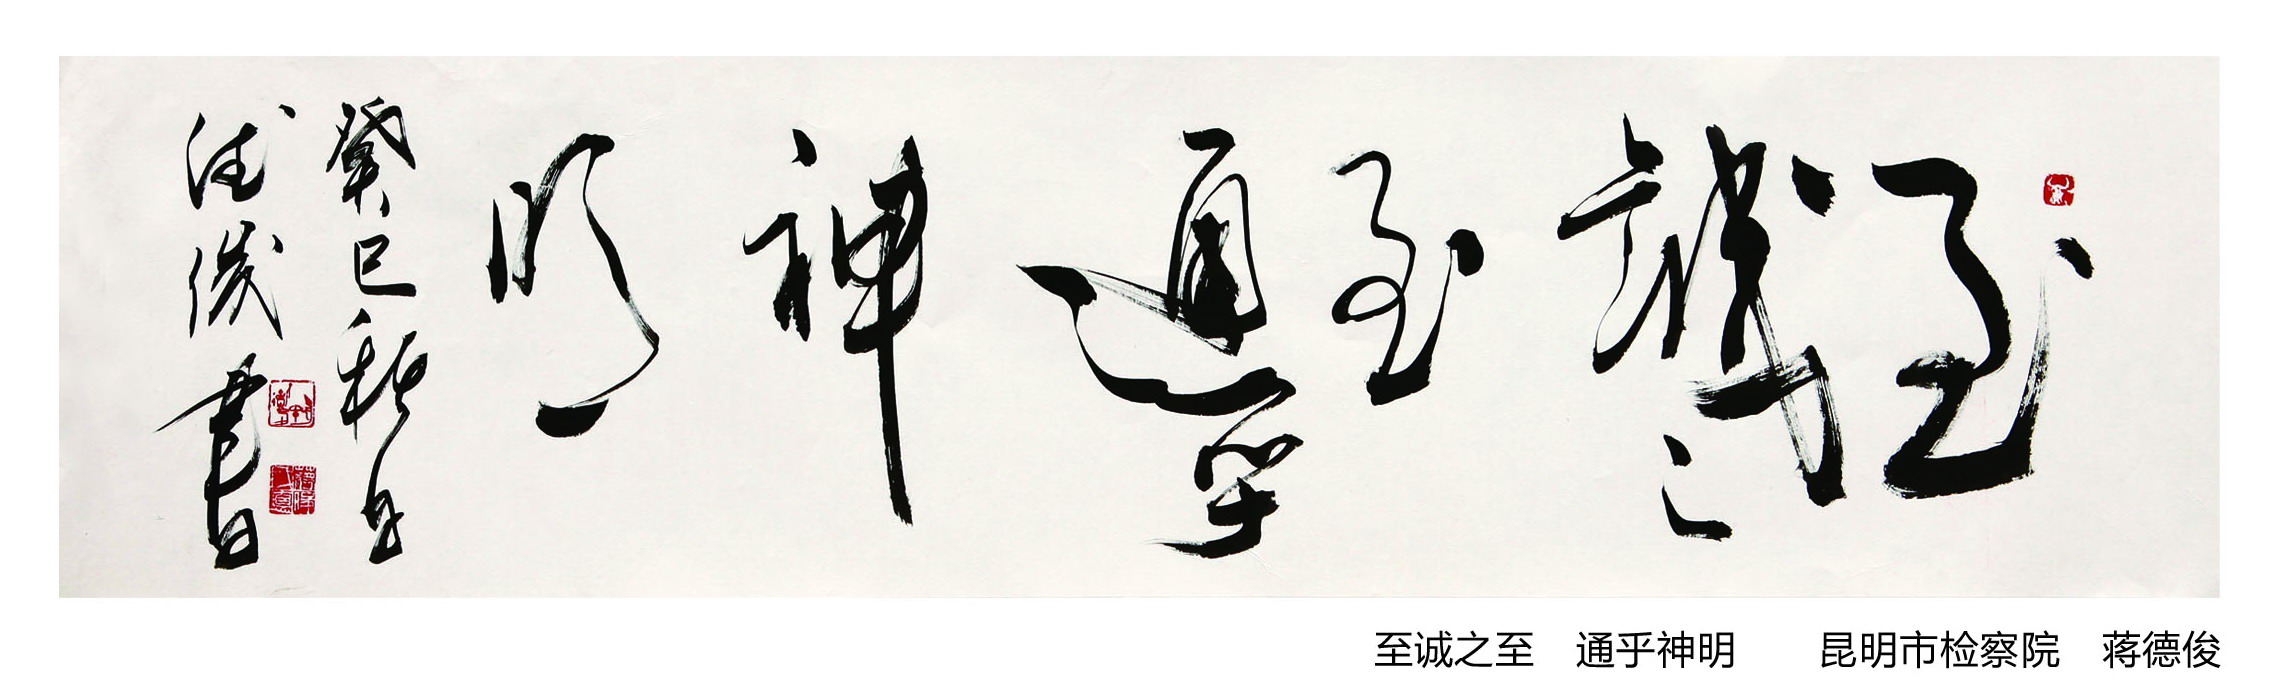 至誠之至通乎神明
癸巳秋月
德俊書
至诚之至　通乎神明　　昆明市检察院　蒋德俊